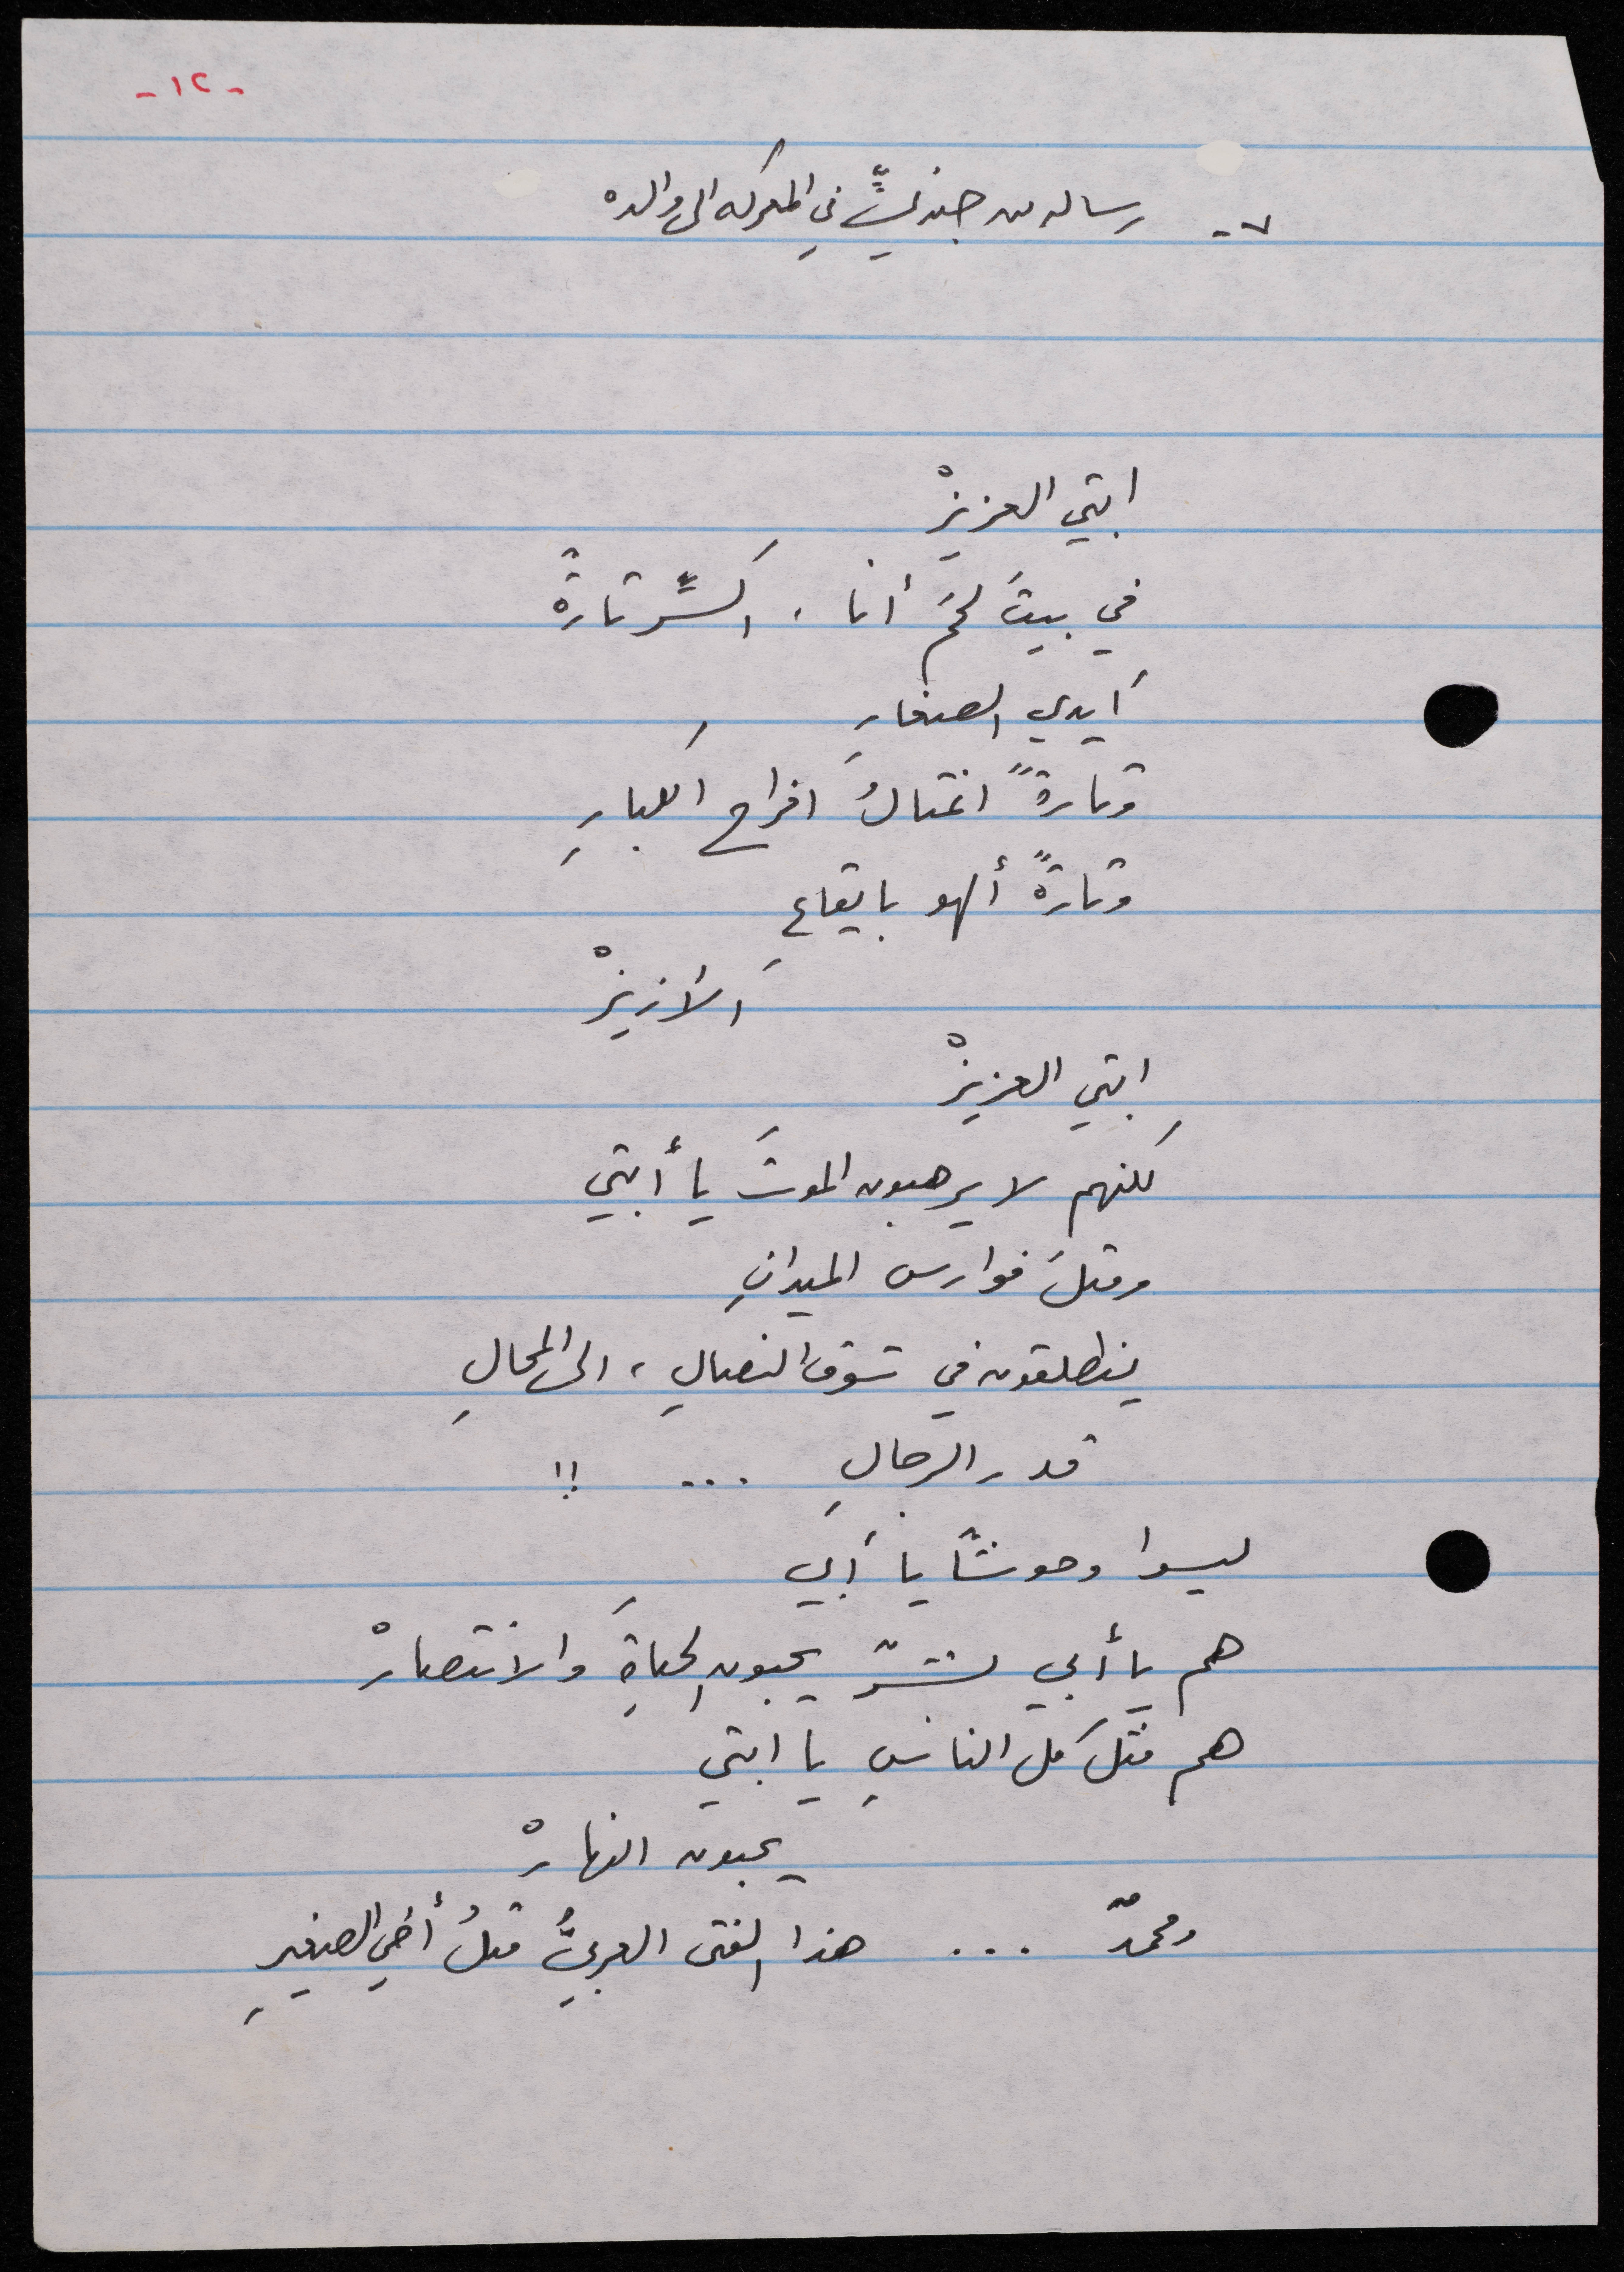 - ١٢ -
٧ - رسالة من جنديٍّ في المعركة الى والده
ابتي العزيزْ
في بيتَ لحمَ أنا ، اكسِّر تارةً
أيدي الصغارِ
وتارةً اغتالُ افراح الكبارِ
وتارةً ألهو بايقاعِ
الأزيزْ
ابتي العزيزْ
لكنهم لا يرهبون الموتَ يا أبتي
ومثلَ فوارس الميدانِ
ينطلقون في شوقِ النصالِ ، الى المحالِ
قدر الرجالِ ... !!
ليسوا وحوشًا يا أبي
هم يا أبي بشرٌ يحبون الحياةِ والانتصارْ
هم مثلَ كل الناسِ يا ابتي
يحبون النهارْ
ومحمدٌ ... هذا الفتى العربيُّ مثلُ أخي الصغيرِ